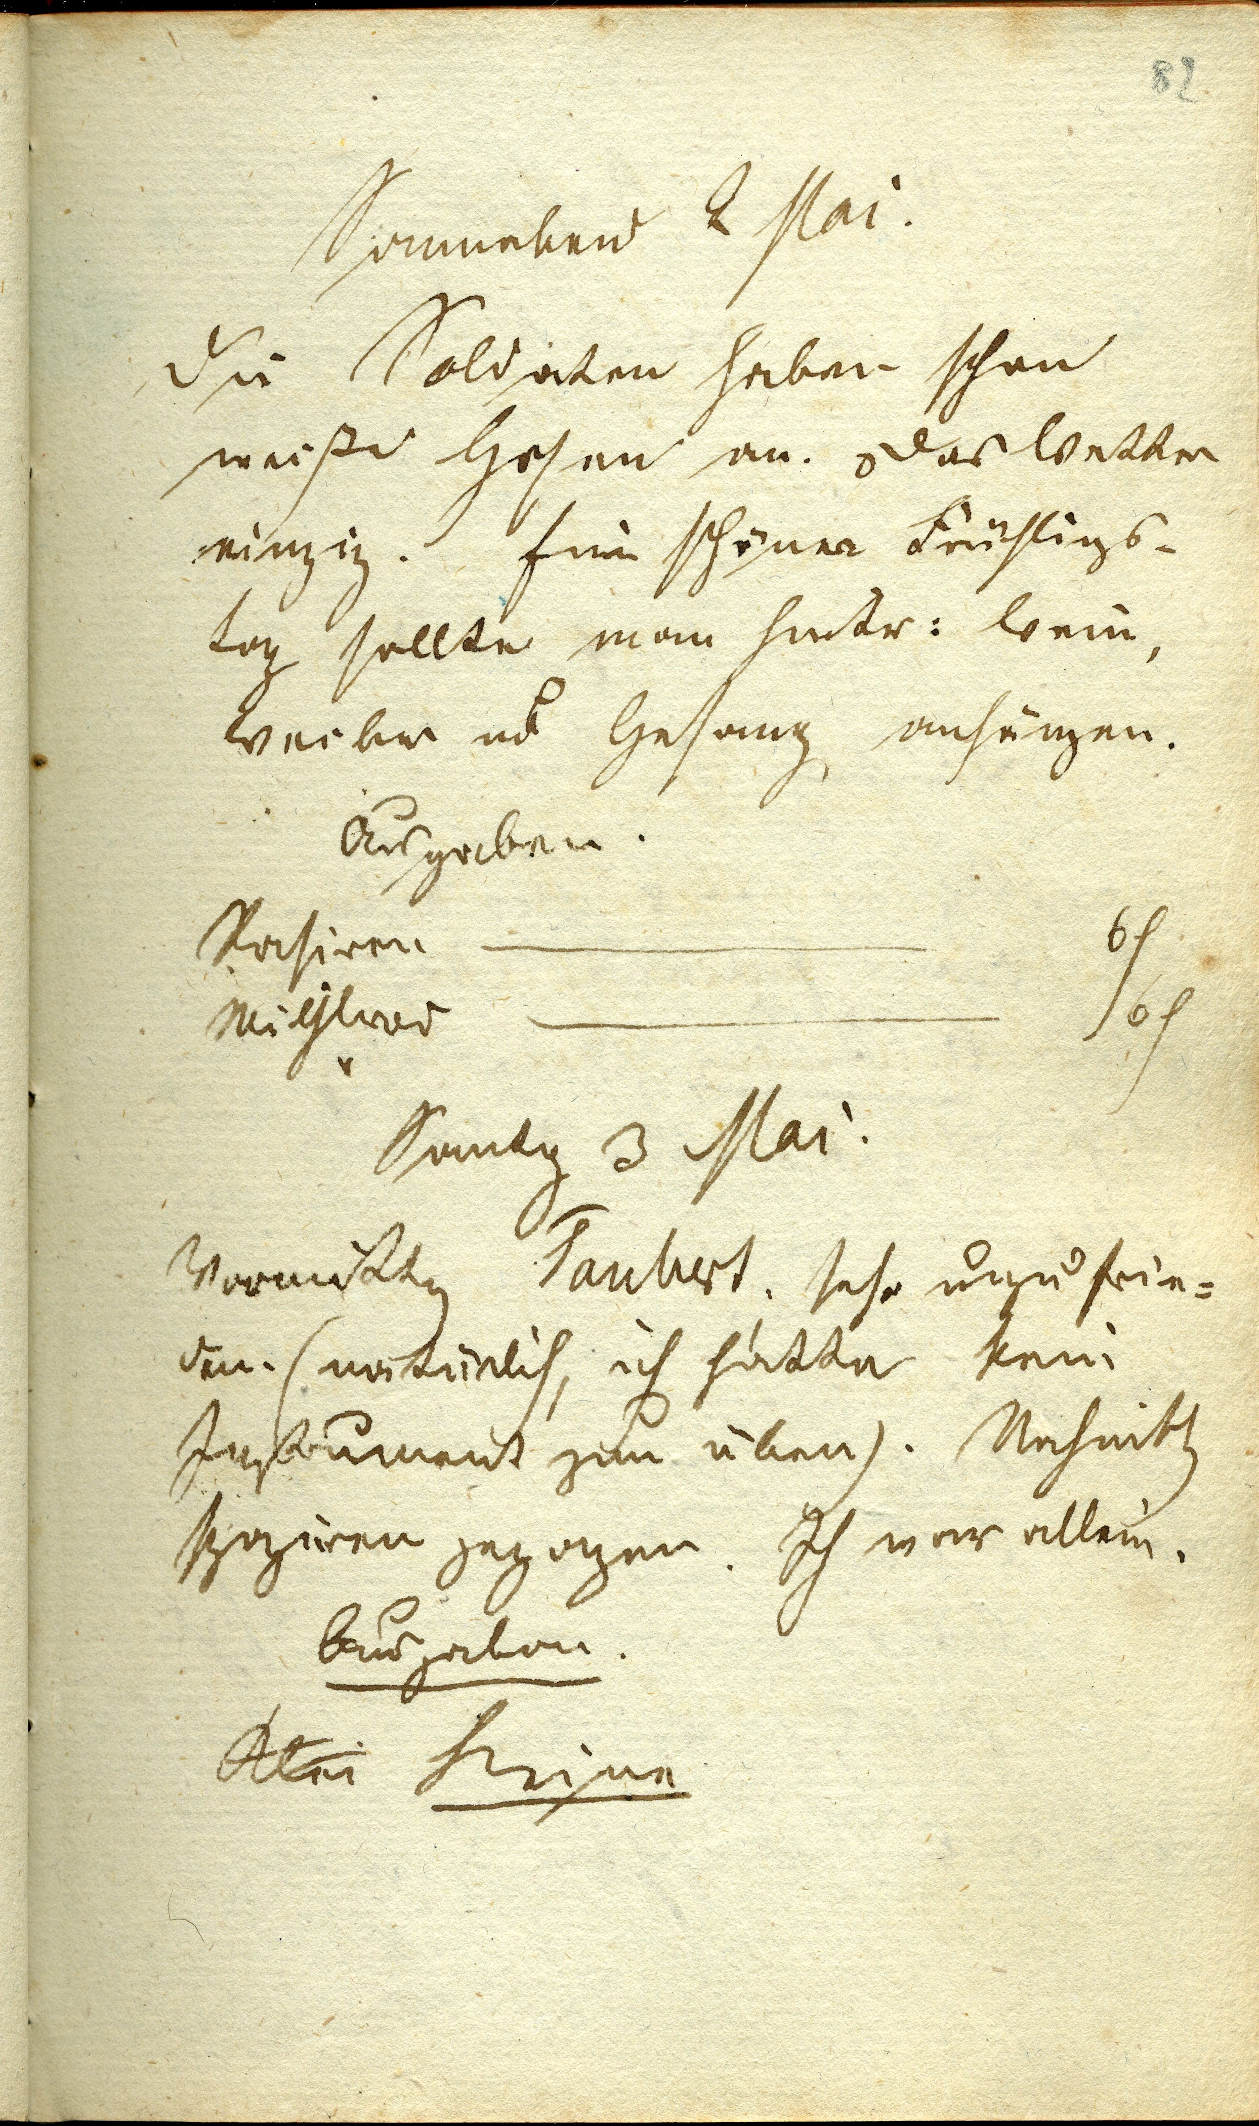 82
Sonnabend 2 Mai.
Die Soldaten haben schon
weiße Hosen an. Das Wetter
einzig. Ein schöner Frühlings-
tag sollte man hintr: Wein,
Weiber ud Gesang anhängen.
Ausgaben.
Rasiren 6
Milchbrod 6
Sontg 3 Mai.
Vormittg Taubert. sehr unzufrie=
den. (natürlich, ich hatte kein
Instrument zum üben). Nachmittg
spaziren gegangen. Ich war allein.
Ausgaben.
Keine